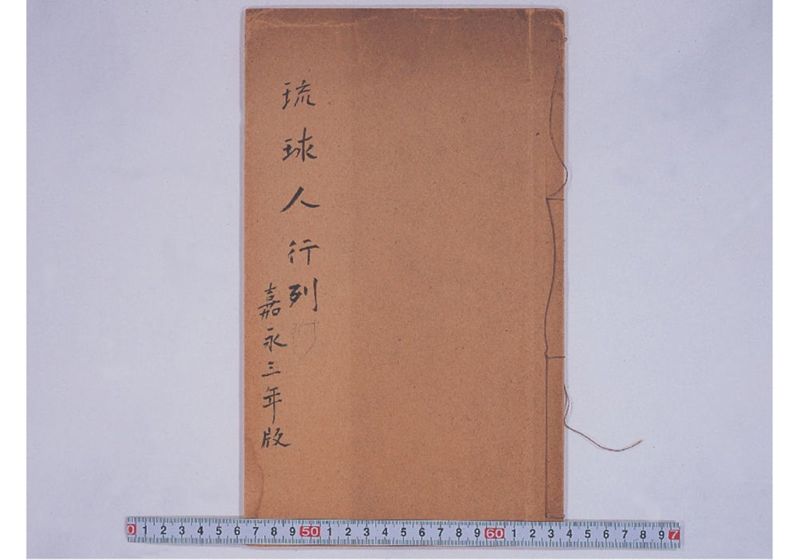 琉球人行列
嘉永三年版
0 1 2 3 4 5 6 7 8 9 50 1 2 3 4 5 6 7 8 9 60 1 2 3 4 5 6 7 8 9 7